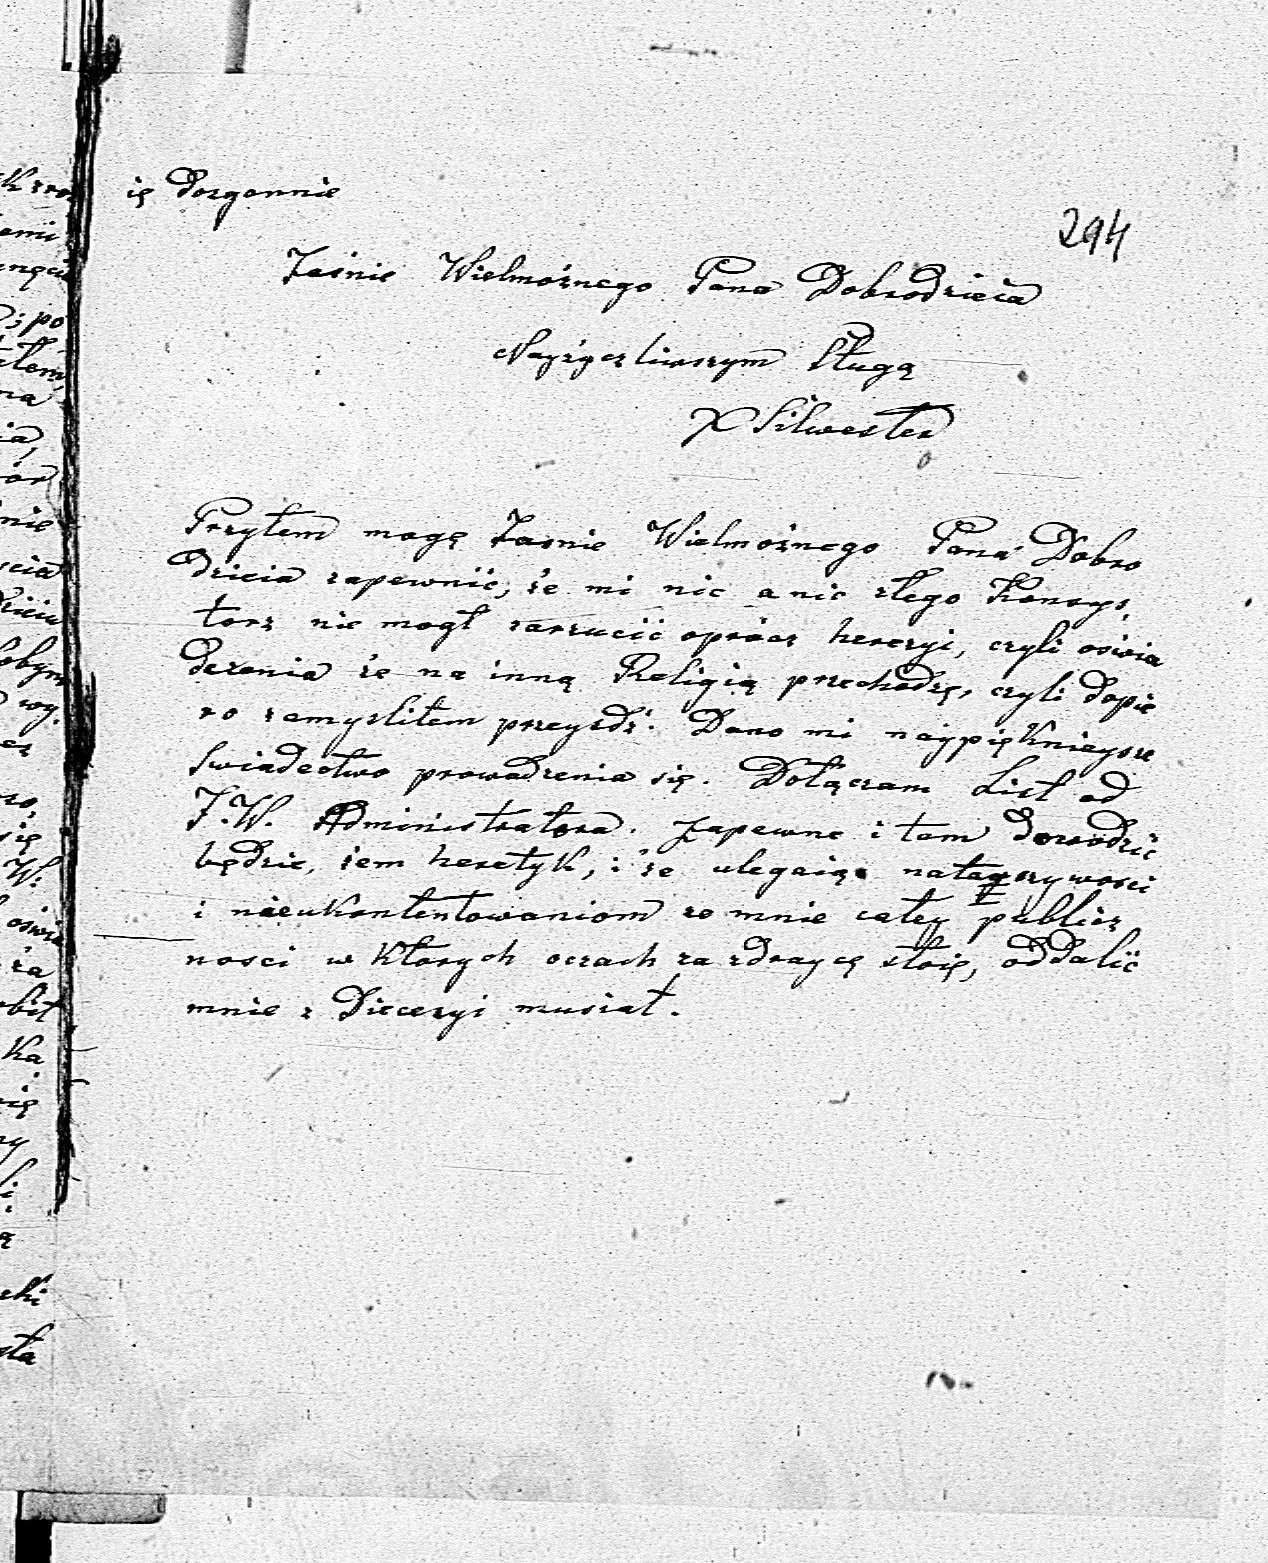 294
ię Dozgonnie
Jaśnie Wielmożnego Pana Dobrodzieia
Nayżyczliwszym Sługą
X Silwester
Przytem mogę Jasnie Wielmożnego Pana Dobro
dzieia zapewnić, że mi nic a nic złego Konsys,
torz nie mogł zarzucić oprócz herezyi, czyli oswia
dczenia że na inną Religią przechodzę, czyli dopie
ro zamyslitem przeysdź. Dano mi naypięknieysze
Swiadectwo prowadzenia się. Dołączam List od
J. W. Administratora. Zapewne i tam dowodzić
będzie, żem heretyk, i że ulegaiąc natarczywosci
i nieukontentowaniom ze mnie całey publicz
nosci w których oczach za zdraycę stoię, oddalić
mnie z Diecezyi musiał.